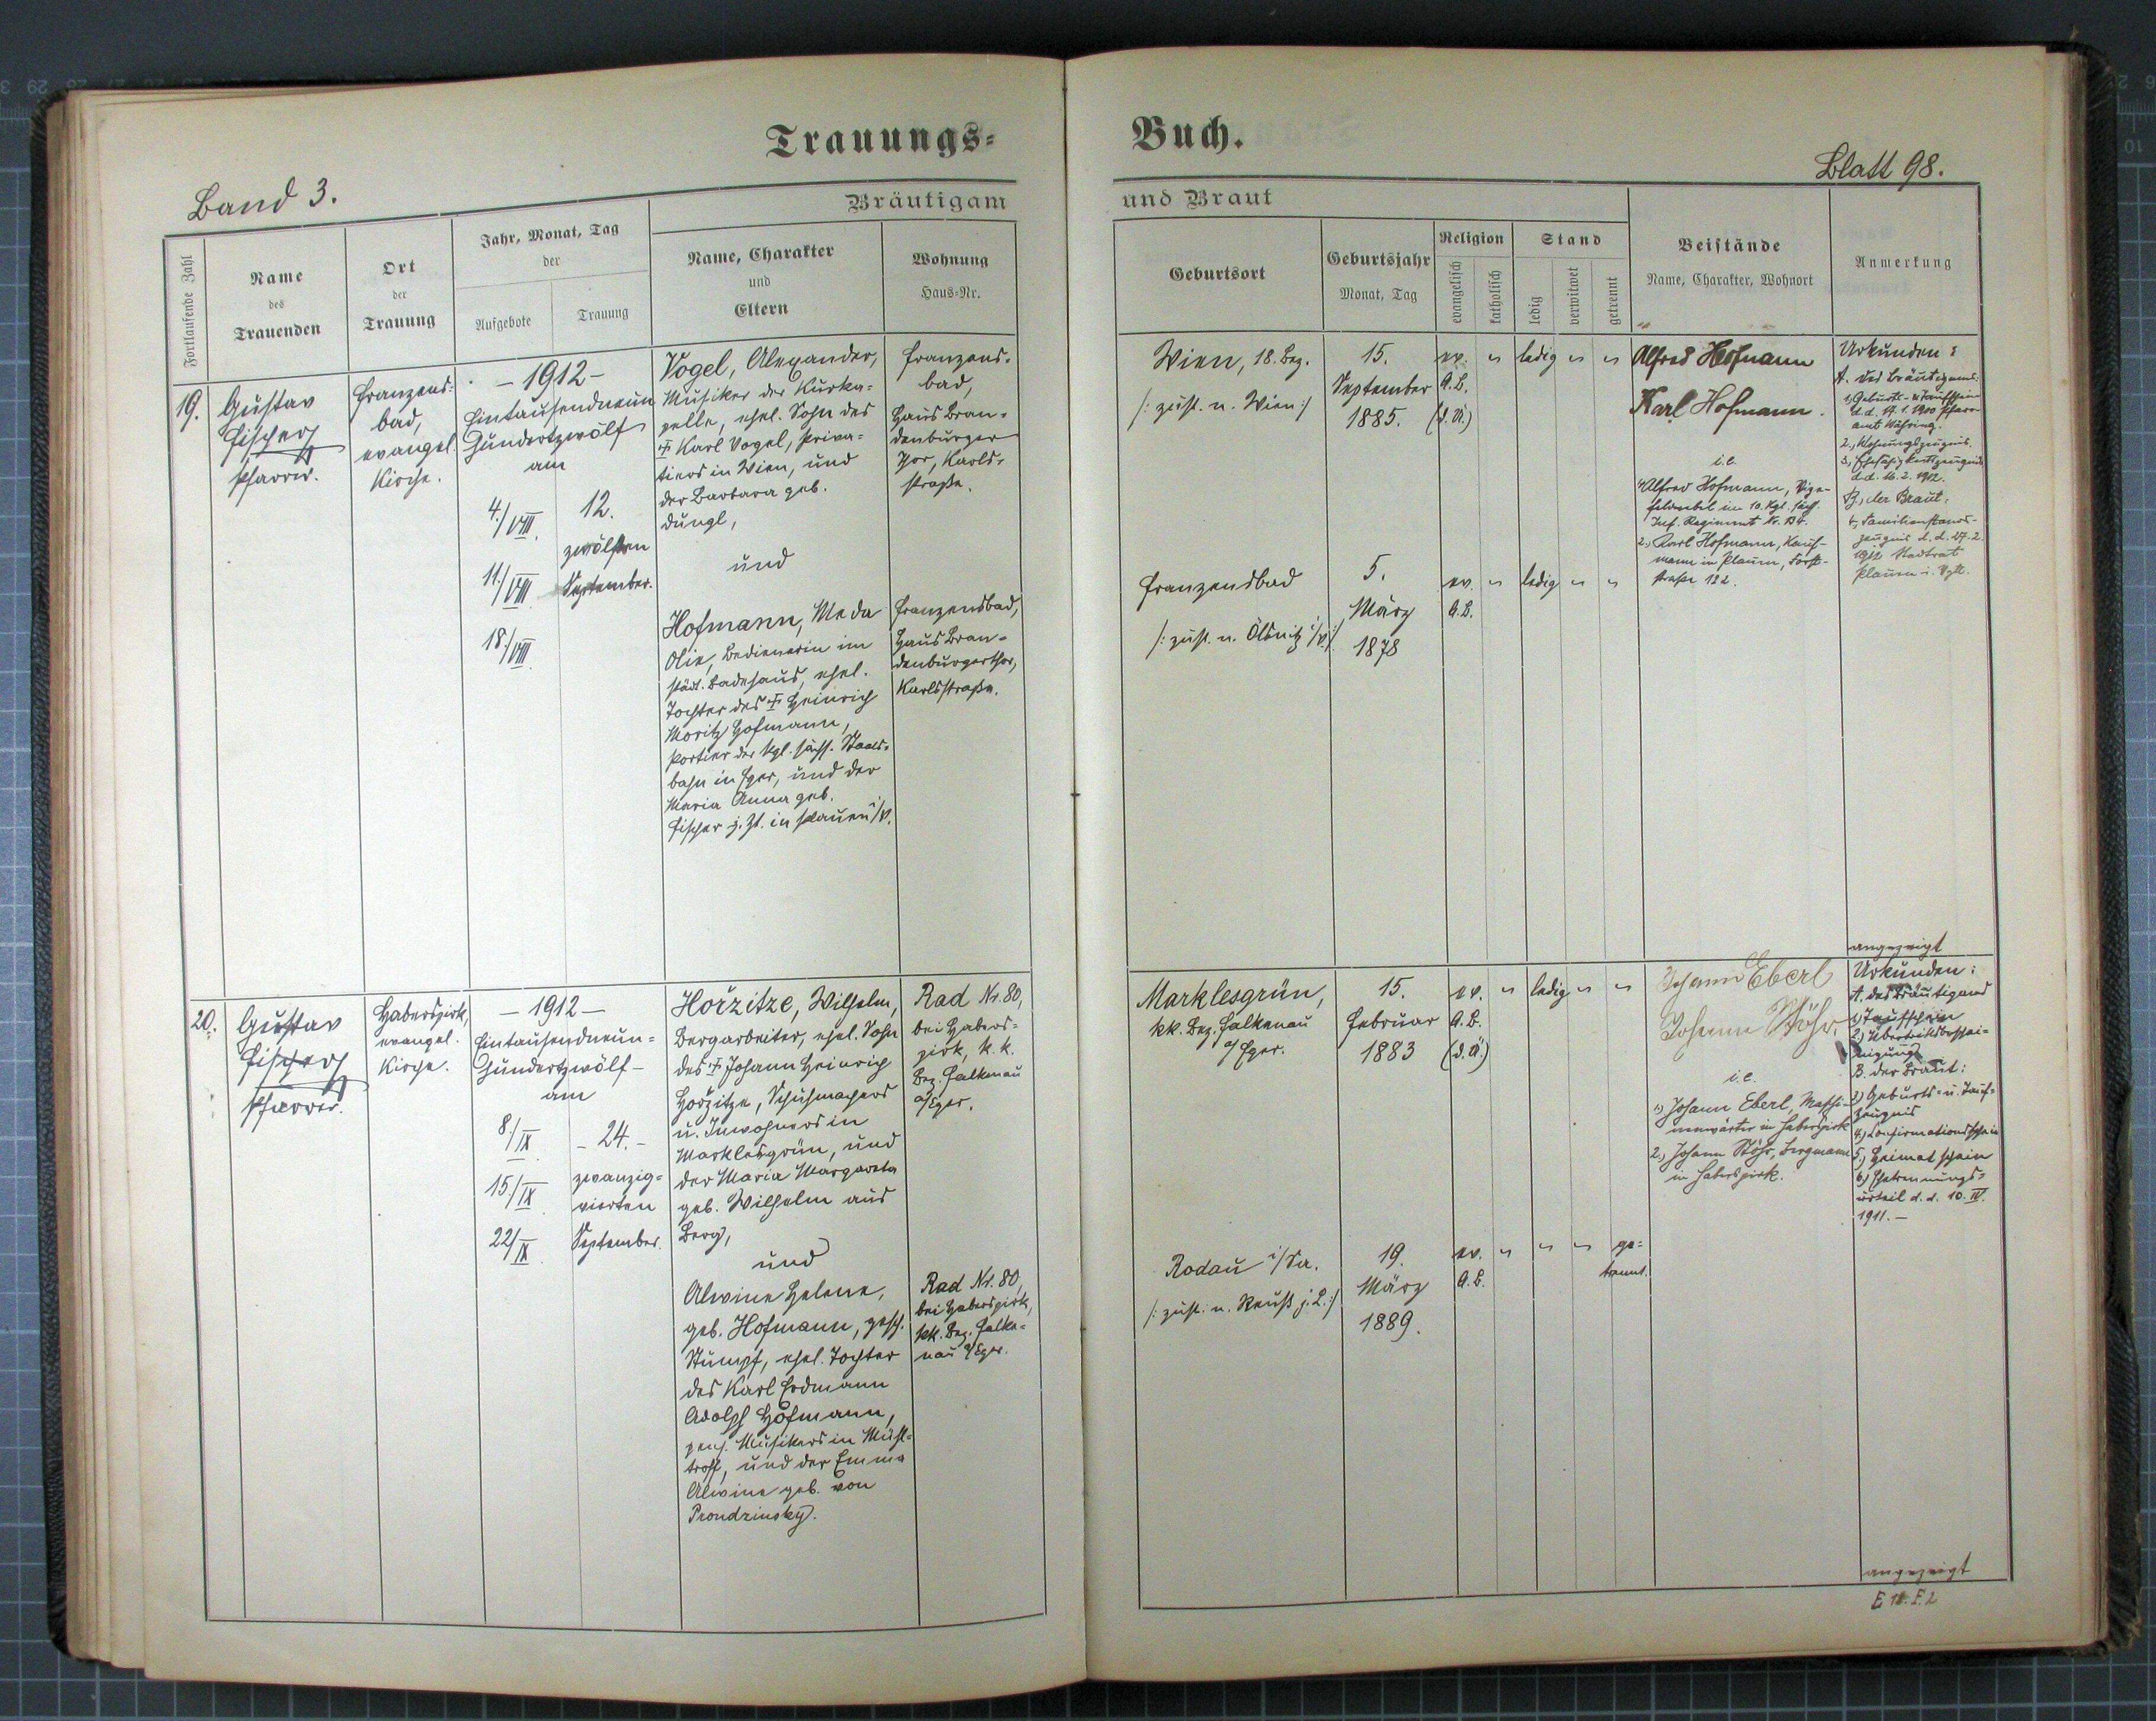 Trauungs=
Buch.
Band 3.
Blatt 98.
Bräutigam
und Braut
Fortlaufende Zahl
Name
des
Trauenden
Ort
der
Trauung
Jahr, Monat, Tag
der
Aufgebote
Trauung
Name, Charakter
und
Eltern
Wohnung
Haus-Nr.
Geburtsort
Geburtsjahr
Monat, Tag
Religion
evangelisch
katholisch
Stand
ledig
verwitwet
getrennt
Beistände
Name, Charakter, Wohnort
Anmerkung
19.
Gustav
Fischer
Pfarrer.
Franzens=
bad,
evangel.
Kirche.
- 1912 -
Eintausendneun
hundertzwölf
am
4./VIII.
11./VIII.
18./VIII.
12.
zwölften
September.
Vogel, Alexander,
Musiker der Kurka=
pelle, ehel. Sohn des
Karl Vogel, Priva=
tiers in Wien, und
der Barbara geb.
Dungl,
und
Hofmann, Meda
Olie, Bedienerin im
städt. Badehaus, ehel.
Tochter des Heinrich
Moritz Hofmann,
Portier der kgl. sächs. Staats=
bahn in Eger, und der
Maria Anna geb.
Fischer z. Zt. in Plauen i/V.
Franzens=
bad,
Haus Bran=
denburger
Thor, Karls=
straße.
Franzensbad,
Haus Bran=
denburgerthor,
Karlsstraße.
Wien, 18. Bez.
/: zust. n. Wien :/
15.
September
1885.
ev.
A.B.
(d. Ä.)
" ledig " "
Franzensbad
/: zust. n. Ölsnitz i/V. :/
5.
März
1878
ev.
A.B.
" ledig " "
Alfred Hofmann
Karl Hofmann.
i.e.
1) Alfred Hofmann, Vize-
feldwebel im 10. Kgl. sächs.
Inf. Regiment Nr. 134.
2.) Karl Hofmann, Kauf-
mann in Plauen, Forst-
straße 122.
Urkunden:
A. des Bräutigams:
1) Geburts- u Taufschein
d.d. 17.1.1900 Pfarr-
amt Währing.
2., Wohnungszeugnis.
3, Ehefähigkeitszeugnis
d.d. 16.2.1912.
B, der Braut.
4, Familienstands-
zeugnis d.d. 27.2.
1912 Stadtrat
Plauen i. Vgtl.
angezeigt
20.
Gustav
Fischer
Pfarrer.
Haberspirk,
evangel.
Kirche.
- 1912 -
Eintausendneun=
hundertzwölf -
am
8./IX
15./IX
22/IX
- 24. -
zwanzig=
vierten
September.
Hořzitze, Wilhelm,
Bergarbeiter, ehel. Sohn
des Johann Heinrich
Hořzitze, Schuhmachers
u. Inwohners in
Marklesgrün, und
der Maria Margareta
geb. Wilhelm aus
Berg,
und
Alwine Helene,
geb. Hofmann, gesch.
Stumpf, ehel. Tochter
des Karl Erdmann
Adolph Hofmann,
pens. Musikers in Mühl=
troff, und der Emma
Alwine geb. von
Prondzinsky.
Rad Nr. 80,
bei Habers=
pirk, k. k.
Bez. Falkenau
a/Eger.
Rad Nr. 80,
bei Haberspirk,
kk. Bez. Falke=
nau a/Eger.
Marklesgrün,
kk. Bez. Falkenau
a/Eger.
15.
Februar
1883
ev.
A.B.
(d. Ä.)
" ledig " "
Rodau i/Sa.
/: zust. n. Reuß j. L. :/
19.
März
1889.
ev.
A.B.
" " " ge=
trennt.
Johann Eberl
Johann Stöhr.
i.e.
1) Johann Eberl, Maschi-
nenwärter in Haberspirk
2.) Johann Stöhr, Bergmann
in Haberspirk.
Urkunden:
A. des Bräutigams
1) Taufschein
2.) Übertrittsbeschei=
nigung
B. der Braut:
3) Geburts- u. Tauf=
zeugnis
4.) Confirmationsschein
5.) Heimatschein
6.) Ehetrennungs=
urteil d.d. 10. IV.
1911. -
angezeigt